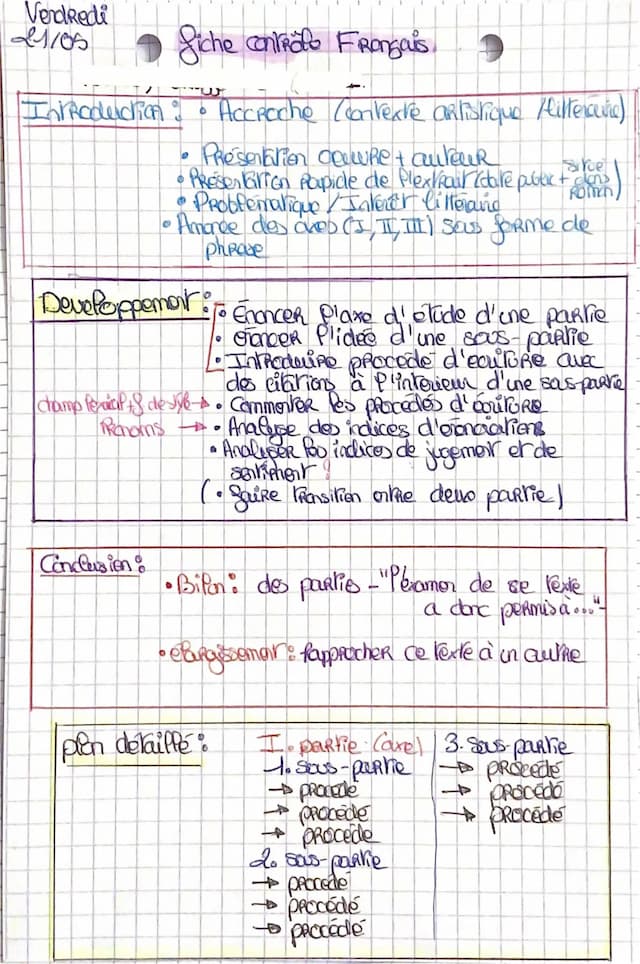 Vendredi
21/05
fiche contrôle Français
Introduction : • Accroche (contexte artistique / littéraire)
• Présentation oeuvre + auteur
• Présentation rapide de l'extrait (date public + situé dans roman)
• Problématique / Intérêt littéraire
• Annonce des axes (I, II, III) sous forme de
phrase
Développement : • Énoncer l'axe d'étude d'une partie
• énoncer l'idée d'une sous-partie
• Introduire procédé d'écriture avec
des citations à l'intérieur d'une sous-partie
champ lexical + f de style → • Commenter les procédés d'écriture
Pronoms → • Analyse des indices d'énonciations
• Analyser les indices de jugement et de
sentiment !
( • faire transition entre deux partie)
Conclusion :
• Bilan : des parties - "l'examen de ce texte
a donc permis à..."-
• élargissement : rapprocher ce texte à un autre
plan détaillé :
I. partie (axe)
1. sous-partie
→ procédé
→ procédé
→ procédé
2. sous-partie
→ procédé
→ procédé
→ procédé
3. sous-partie
→ procédé
→ procédé
→ procédé